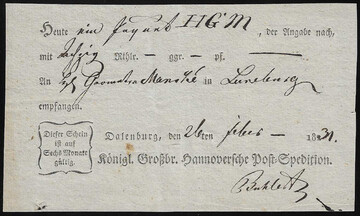 Heute ein Paquet HGM, der Angabe nach,
mit sechzig Rthlr. — ggr. — pf.
An Geometer in Lüneburg
empfangen.
Dieser Schein
ist auf
Sechs Monate
gültig.
Dalenburg, den 26ten Febr — 1831.
Königl. Großbr. Hannoversche Post-Spedition.